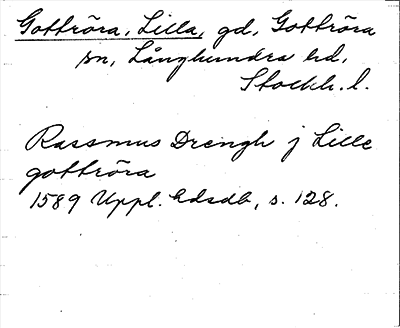 Gottröra, Lilla, gd, Gottröra
sn, Långhundra hd,
Stockh. l.
Rassmus Drengh j Lille
gottröra
1589 Uppl. hdsdb, s. 128.